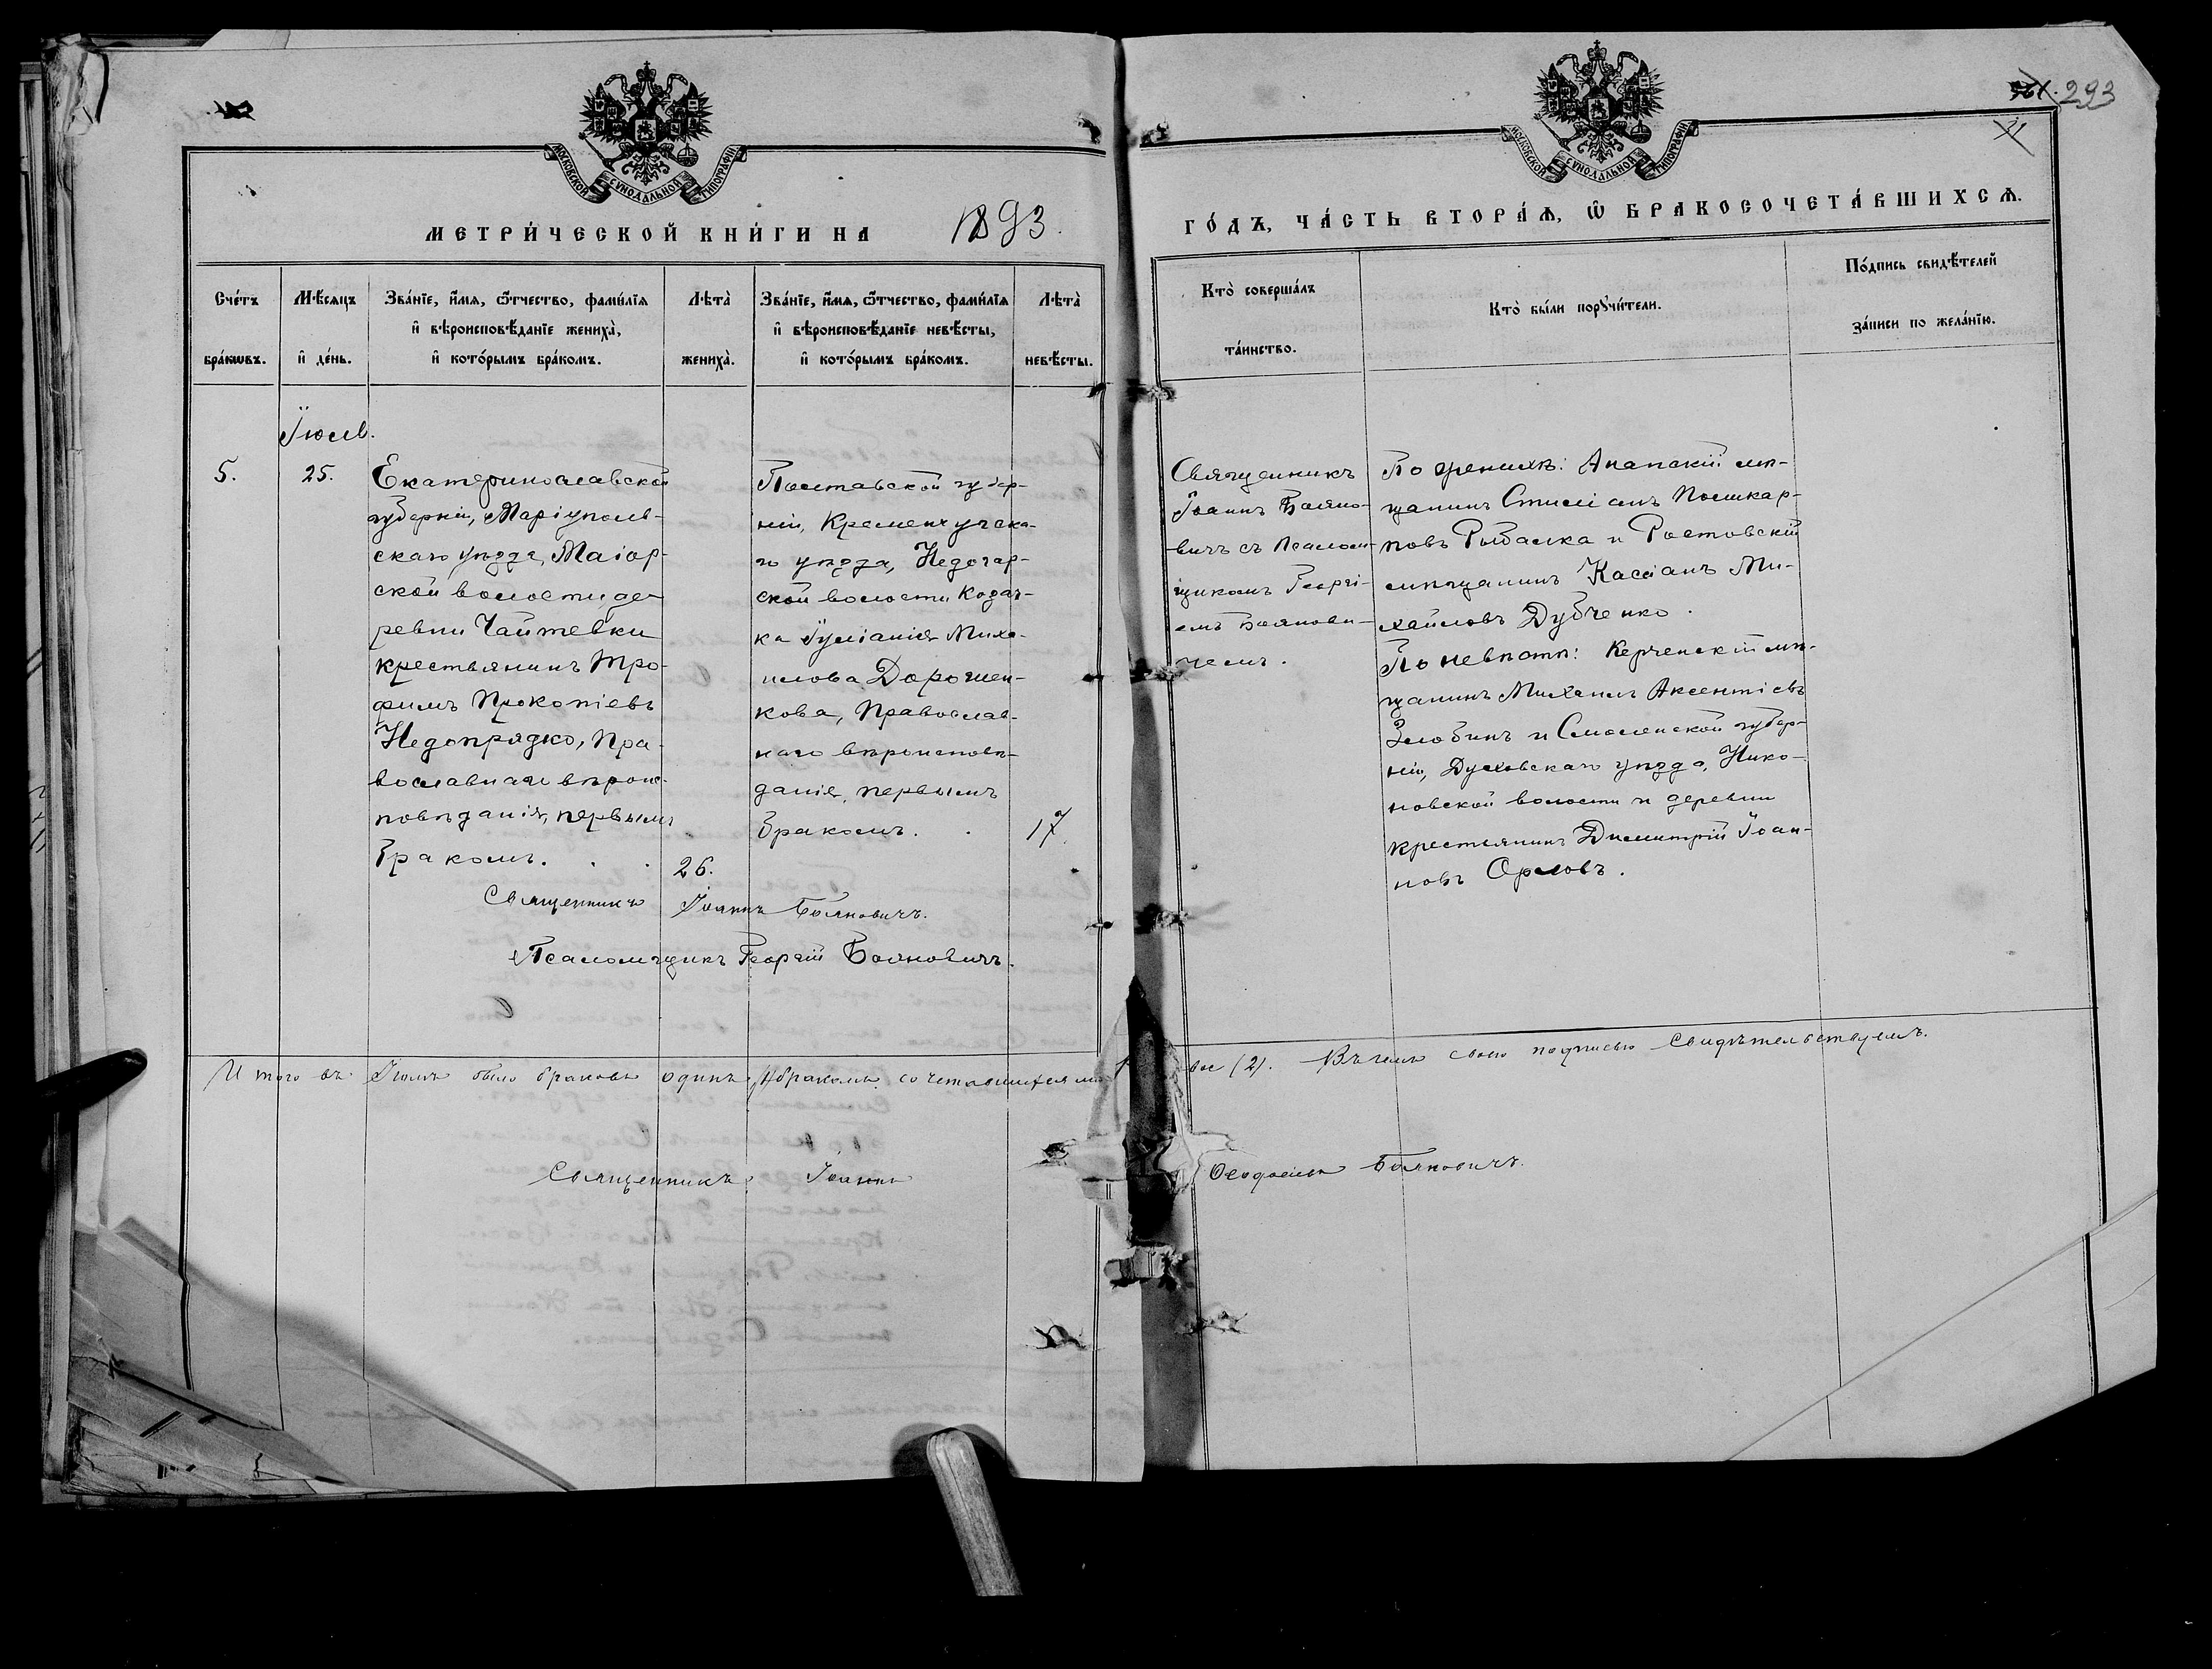 293
МОСКОВСКОЙ СУНОДАЛЬНОЙ ТИПОГРАФІИ
МОСКОВСКОЙ СУНОДАЛЬНОЙ ТИПОГРАФІИ
МЕТРИ́ЧЕСКОЙ КНИ́ГИ НА 1893.
ГО́ДЪ, ЧА́СТЬ ВТОРА́Ѧ, Ѡ҆ БРАКОСОЧЕТА́ВШИХСѦ.
Сче́тъ
бра́кѡвъ.
Мѣ́сяцъ
и҆ де́нь.
Зва́нїе, и҆́мѧ, ѻ҆́тчество, фами́лїѧ
и҆ вѣроисповѣ́данїе жениха̀,
и҆ кото́рымъ бра́комъ.
Лѣта̀
жениха̀.
Зва́нїе, и҆́мѧ, ѻ҆́тчество, фами́лїѧ
и҆ вѣроисповѣ́данїе невѣ́сты,
и҆ кото́рымъ бра́комъ.
Лѣта̀
невѣ́сты.
Кто̀ соверша́лъ
та́инство.
Кто̀ бы́ли порꙋчи́тели.
По́дпись свидѣ́телей
за́писи по жела́нїю.
Іюль.
5.
25.
Екатеринославской
губерніи, Маріуполь-
скаго уѣзда, Маіор-
ской волости, де-
ревни Чайтевки
крестьянинъ Тро-
фимъ Прокопіевъ
Недопрядко, Пра-
вославнаго вѣроис-
повѣданія, первымъ
бракомъ.
26.
Полтавской губер-
ніи, Кременчугска-
го уѣзда, Недогар-
ской волости Козач-
ка Іуліанія Миха-
илова Дорошен-
кова, Православ-
наго вѣроисповѣ-
данія, первымъ
бракомъ.
17.
Священникъ Іоаннъ Бояновичъ.
Псаломщикъ Георгій Бояновичъ.
Священникъ
Іоаннъ Бояно-
вичъ съ Псалом-
щикомъ Георгі-
емъ Боянови-
чемъ.
По женихѣ: Анапскій мѣ-
щанинъ Стиліанъ
Рыбалка и Ростовскій
мѣщанинъ Кассіанъ Ми-
хайловъ Дубченко.
По невѣстѣ: Керченскій мѣ-
щанинъ Михаилъ Аксентіевъ
Злобинъ и Смоленской губер-
ніи, Духовскаго уѣзда, Нико-
новской волости и деревни
крестьянинъ Димитрій Іоан-
новъ Орловъ.
Итого въ Іюлѣ было браковъ одинъ, бракомъ сочетавшихся
двое (2). Въ чемъ своею подписью свидѣтельствуемъ.
Священникъ Іоаннъ Ѳеодосіевъ Бояновичъ.